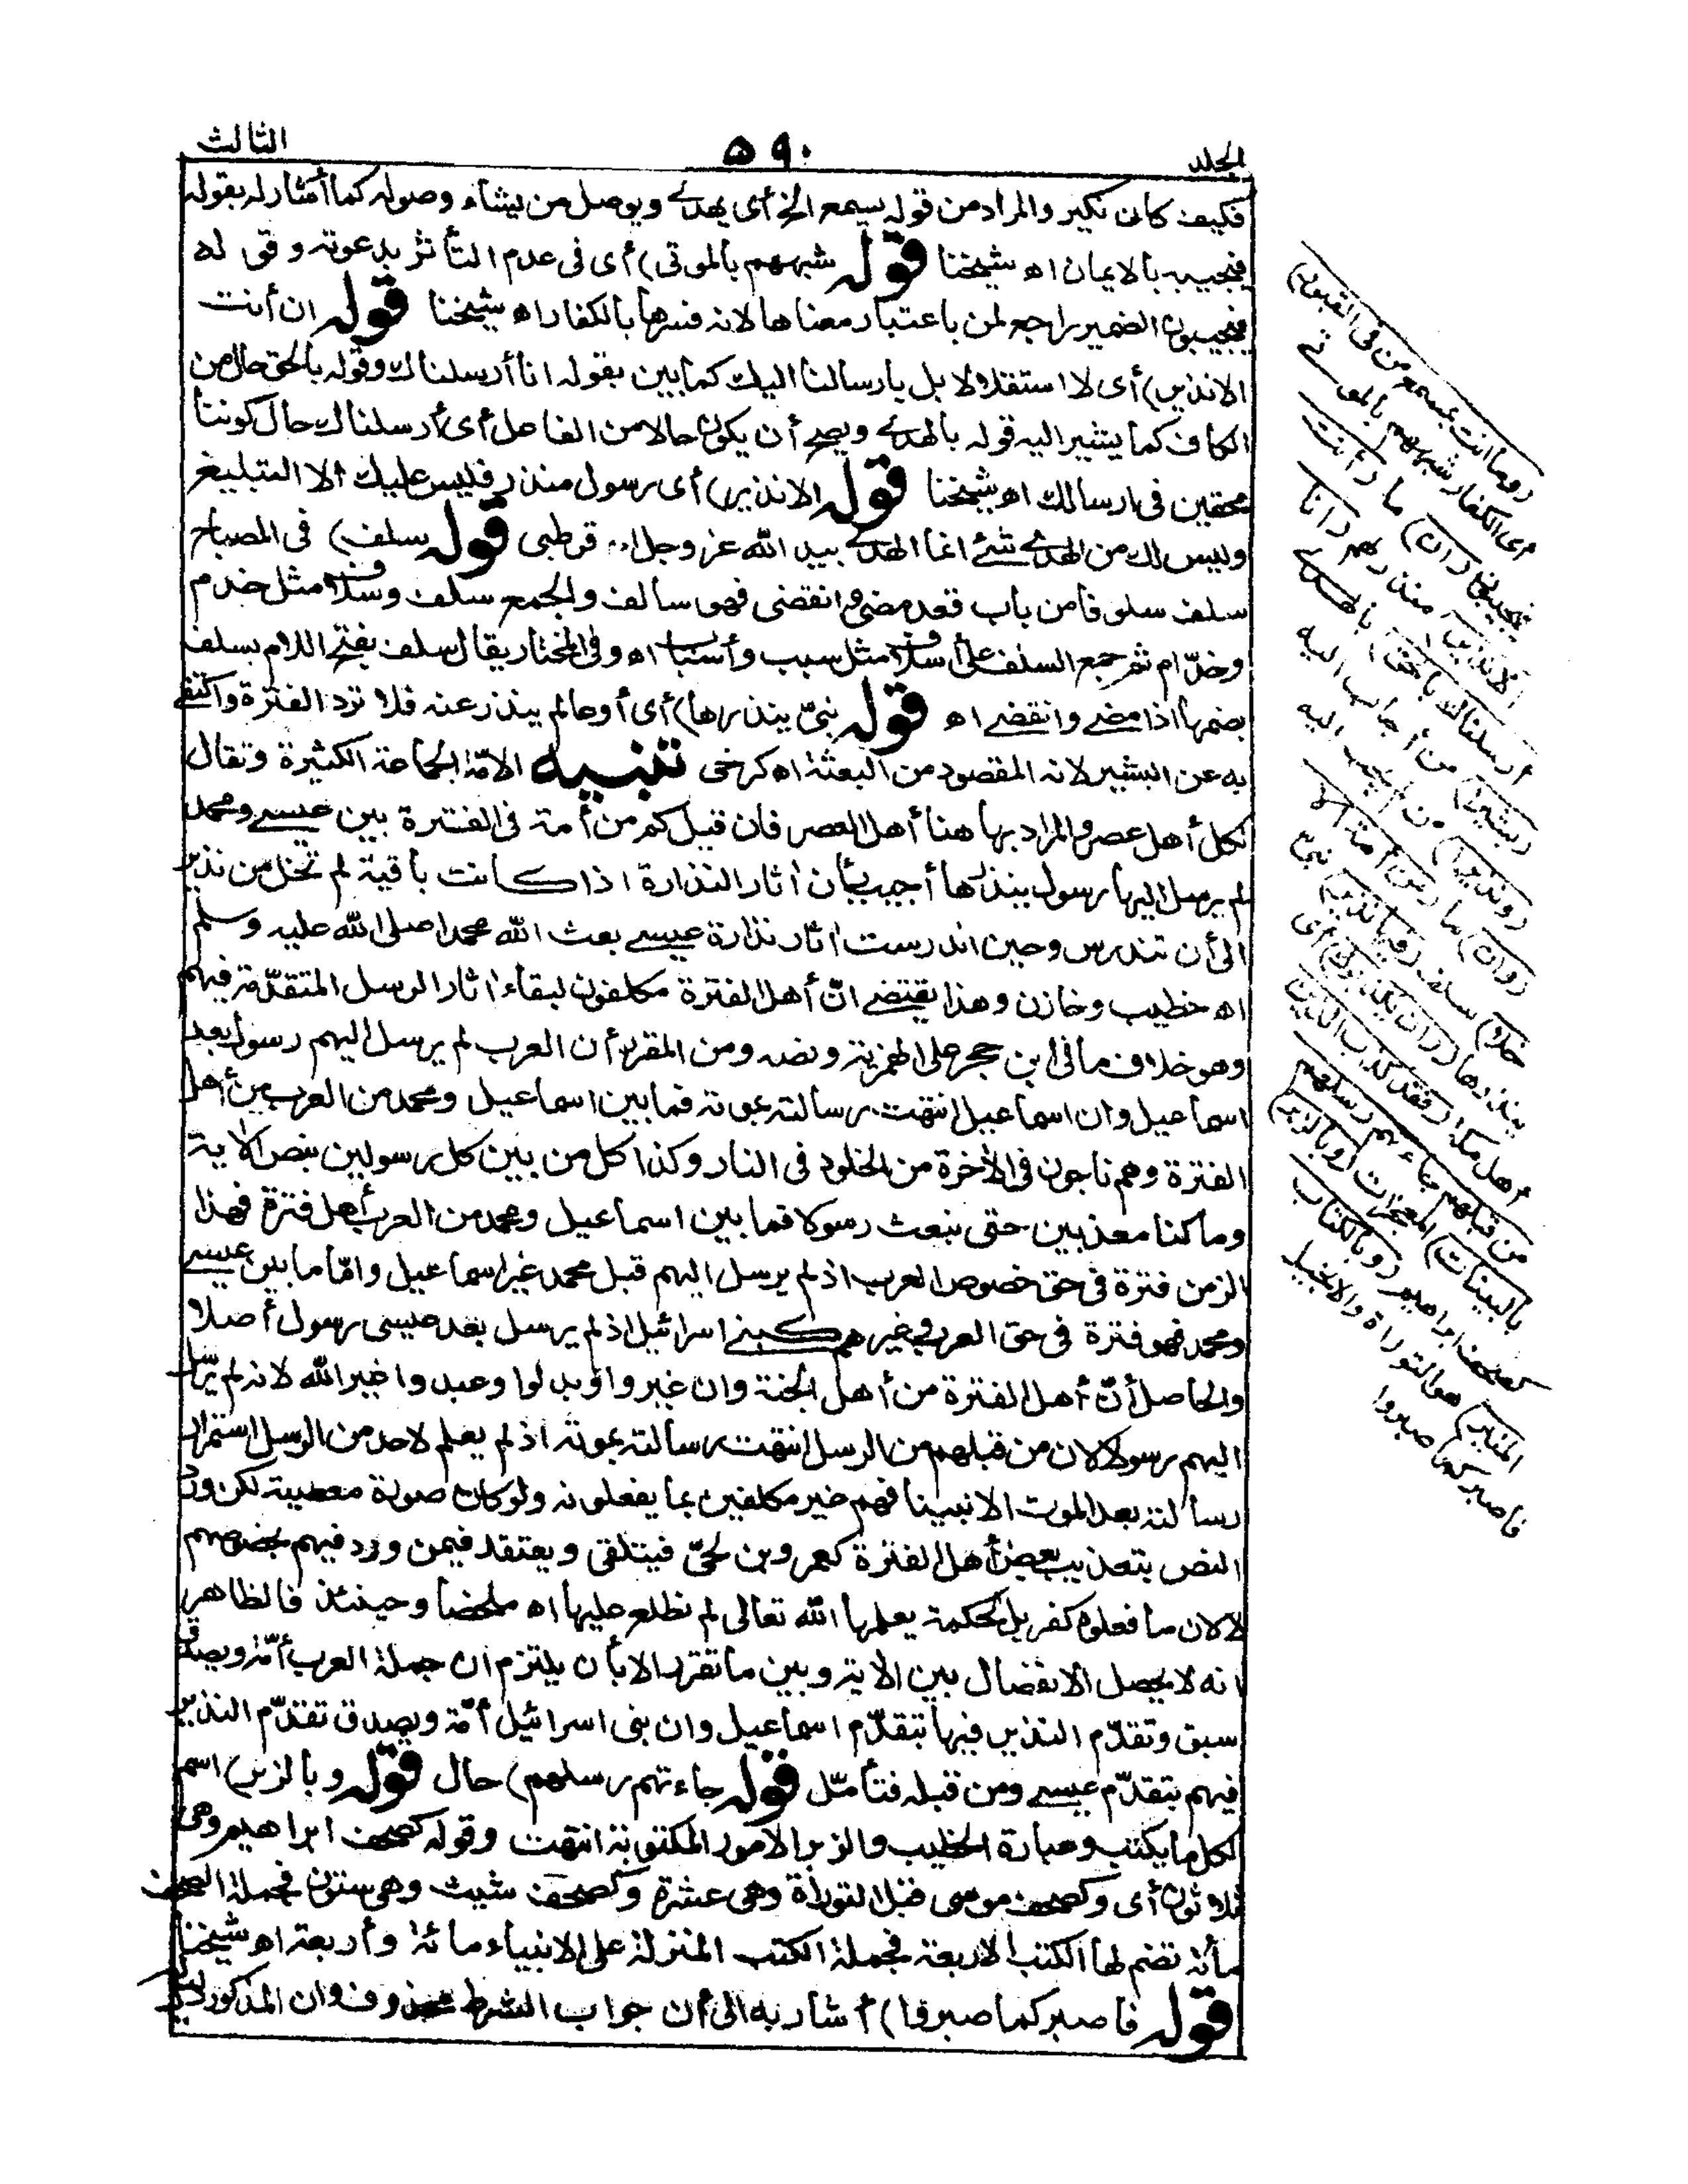 الجلد
٥٩٠
الثالث
فكيف كان نكير والمراد من قوله يسمع الخ أى يهدى ويوصل من يشاء وصوله كما أشار له بقوله
فيجيبه بالايمان اه شيخنا قوله شبههم بالموتى) أى فى عدم التأثر بدعوته وقوله
فيجيبون الضمير راجع لمن باعتبار معناها لانه فسرها بالكفار اه شيخنا قوله ان أنت
الا نذير) أى لا استقلالا بل بارسالنا اليك كما بين بقوله انا أرسلناك وقوله بالحق حال من
الكاف كما يشير اليه قوله بالهدى ويصح أن يكون حالا من الفاعل أى أرسلناك حال كوننا
محقين فى ارسالك اه شيخنا قوله الا نذير) أى رسول منذر فليس عليك الا التبليغ
وليس لك من الهدى شئ انما الهدى بيد الله عز وجل اه قرطبى قوله سلف) فى المصباح
سلف سلوفا من باب قعد مضى وانقضى فهو سالف والجمع سلف وسلاف مثل خدم
وخدّام ثم جمع السلف على أسلاف مثل سبب وأسباب اه وفى المختار يقال سلف بفتح اللام يسلف
بضمها اذا مضى وانقضى اه قوله نبىّ ينذرها) أى أو عالم ينذر عنه فلا ترد الفترة واكتفى
به عن البشير لانه المقصود من البعثة اه كرخى تنبيه الامّة الجماعة الكثيرة وتقال
لكل أهل عصر والمراد بها هنا أهل العصر فان قيل كم من أمة فى الفترة بين عيسى ومحمد
لم يرسل اليها رسول ينذرها أجيب بأن آثار النذارة اذا كانت باقية لم تخل من نذير
الى أن تندرس وحين اندرست آثار نذارة عيسى بعث الله محمدا صلى الله عليه وسلم
اه خطيب وخازن وهذا يقتضى انّ أهل الفترة مكلفون لبقاء آثار الرسل المتقدّمة فيهم
وهو خلاف ما فى ابن حجر على الهمزية ونصه ومن المقرر أن العرب لم يرسل اليهم رسول بعد
اسماعيل وان اسماعيل انتهت رسالته بموته فما بين اسماعيل ومحمد من العرب من أهل
الفترة وهم ناجون فى الآخرة من الخلود فى النار وكذا كل من بين كل رسولين بنص الآية
وما كنا معذبين حتى نبعث رسولا فما بين اسماعيل ومحمد من العرب أهل فترة فهذا
الزمن فترة فى حق خصوص العرب اذ لم يرسل اليهم قبل محمد غير اسماعيل وامّا ما بين عيسى
ومحمد فهو فترة فى حق العرب وغيرهم كبنى اسرائيل اذ لم يرسل بعد عيسى رسول أصلا
والحاصل أنّ أهل الفترة من أهل الجنة وان غيروا وبدلوا وعبدوا غير الله لانه لم يرسل
اليهم رسول لان من قبلهم من الرسل انتهت رسالته بموته اذ لم يعلم لاحد من الرسل استمرار
رسالته بعد الموت الا نبينا فهم غير مكلفين بما يفعلونه ولو كان صورة معصية لكن ورد
النص بتعذيب بعض أهل الفترة كعمرو بن لحىّ فيتلقى ويعتقد فيمن ورد فيهم بخصوصهم
لا لان ما فعلوه كفر بل لحكمة يعلمها الله تعالى لم نطلع عليها اه ملخصا وحينئذ فالظاهر
انه لا يحصل الانفصال بين الآية وبين ما تقرر الا بأن يلتزم ان جملة العرب أمّة ويصدق
سبق وتقدّم النذير فيها بتقدّم اسماعيل وان بنى اسرائيل أمّة ويصدق تقدّم النذير
فيهم بتقدّم عيسى ومن قبله فتأمّل قوله جاءتهم رسلهم) حال قوله وبالزبر) اسم
لكل ما يكتب وعبارة الخطيب والزبر الامور المكتوبة انتهت وقوله كصحف ابراهيم وهى
ثلاثون أى وكصحف موسى قبل التوراة وهى عشرة وكصحف شيث وهى ستون فجملة الصحف
مائة تضم لها الكتب الاربعة فجملة الكتب المنزلة على الانبياء مائة وأربعة اه شيخنا
قوله فاصبر كما صبروا) أشار به الى أن جواب الشرط محذوف وان المذكور
(وما انت بمسمع من فى القبور)
أى الكفار شبههم بالموتى
فيجيبون (ان) ما (أنت
الا نذير) منذر لهم (انا
أرسلناك بالحق) بالهدى
(بشيرا) من أجاب اليه
(ونذيرا) من لم يجب اليه
(وان) ما (من أمة الا
خلا) سلف (فيها نذير) نبىّ
ينذرها (وان يكذبوك) أى
أهل مكة (فقد كذب الذين
من قبلهم جاءتهم رسلهم
بالبينات) المعجزات (وبالزبر)
كصحف ابراهيم (وبالكتاب
المنير) هو التوراة والانجيل
فاصبر كما صبروا